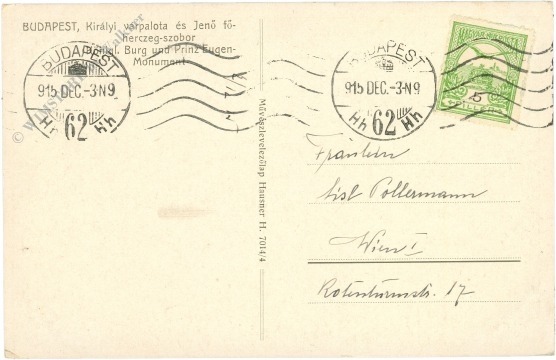 BUDAPEST, Királyi várpalota és Jenő fő-
herczeg-szobor
Königl. Burg und Prinz Eugen-
Monument
BUDAPEST
915 DEC.-3 N9
62
Hh
BUDAPEST
915 DEC.-3 N9
Hh 62 Hh
MAGYAR
5
Művészlevelezőlap Hausner H. 7014/4
Fräulein
Lisl Pollermann
Wien I
Rotenturmstr. 17